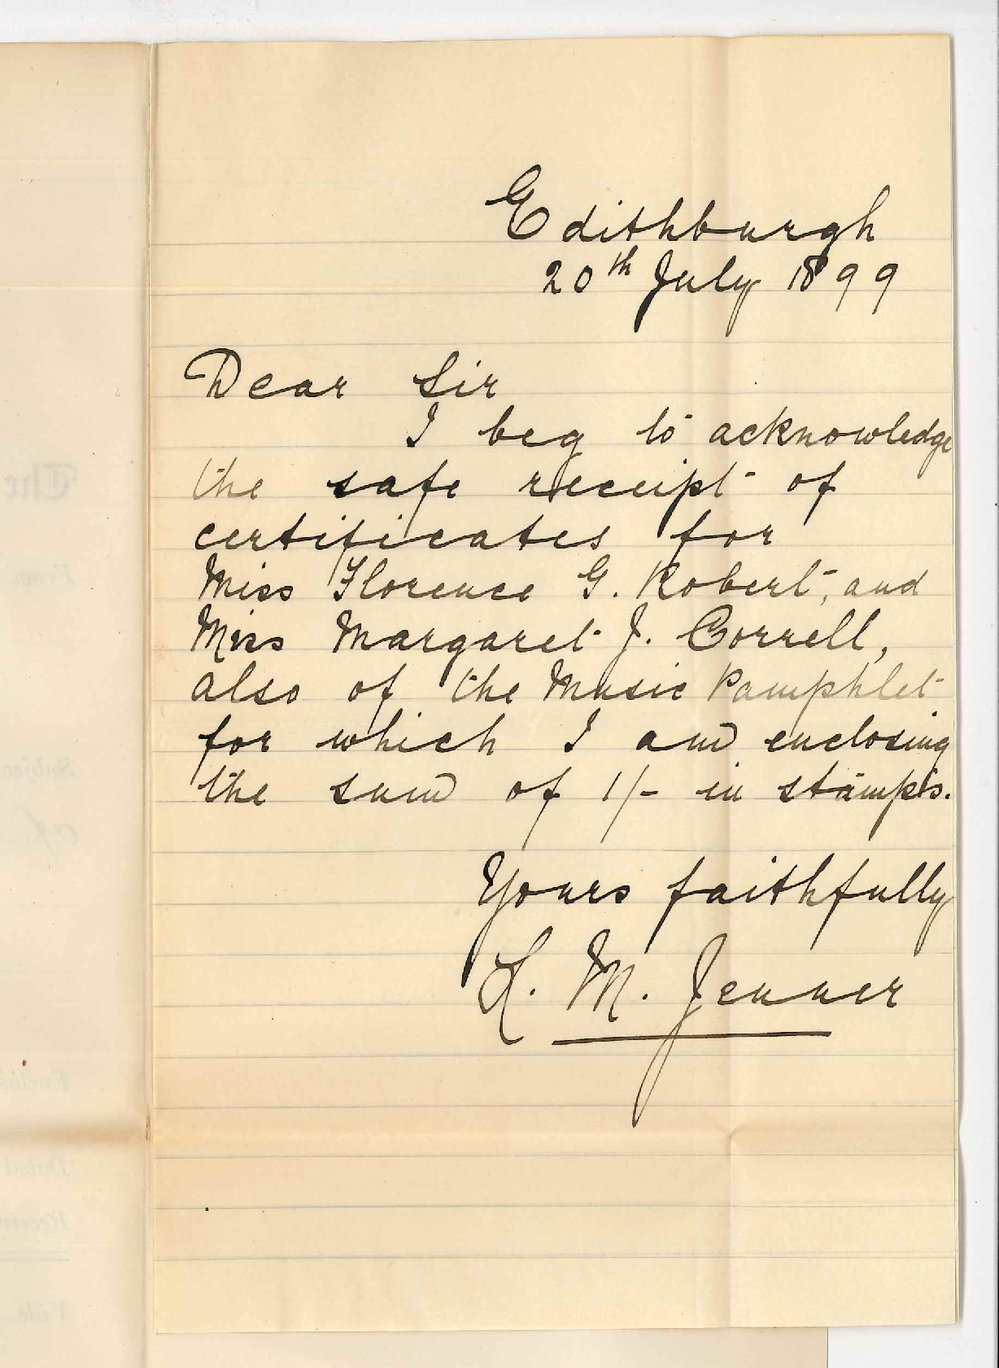 Edithburgh
20th July 1899
Dear Sir
I beg to acknowledge
the safe receipt of
certificates for
Miss Florence G. Robert, and
Miss Margaret J. Correll,
also of the Music Pamphlet
for which I am enclosing
the sum of 1/- in stamps.
Yours faithfully
L. M. Jenner